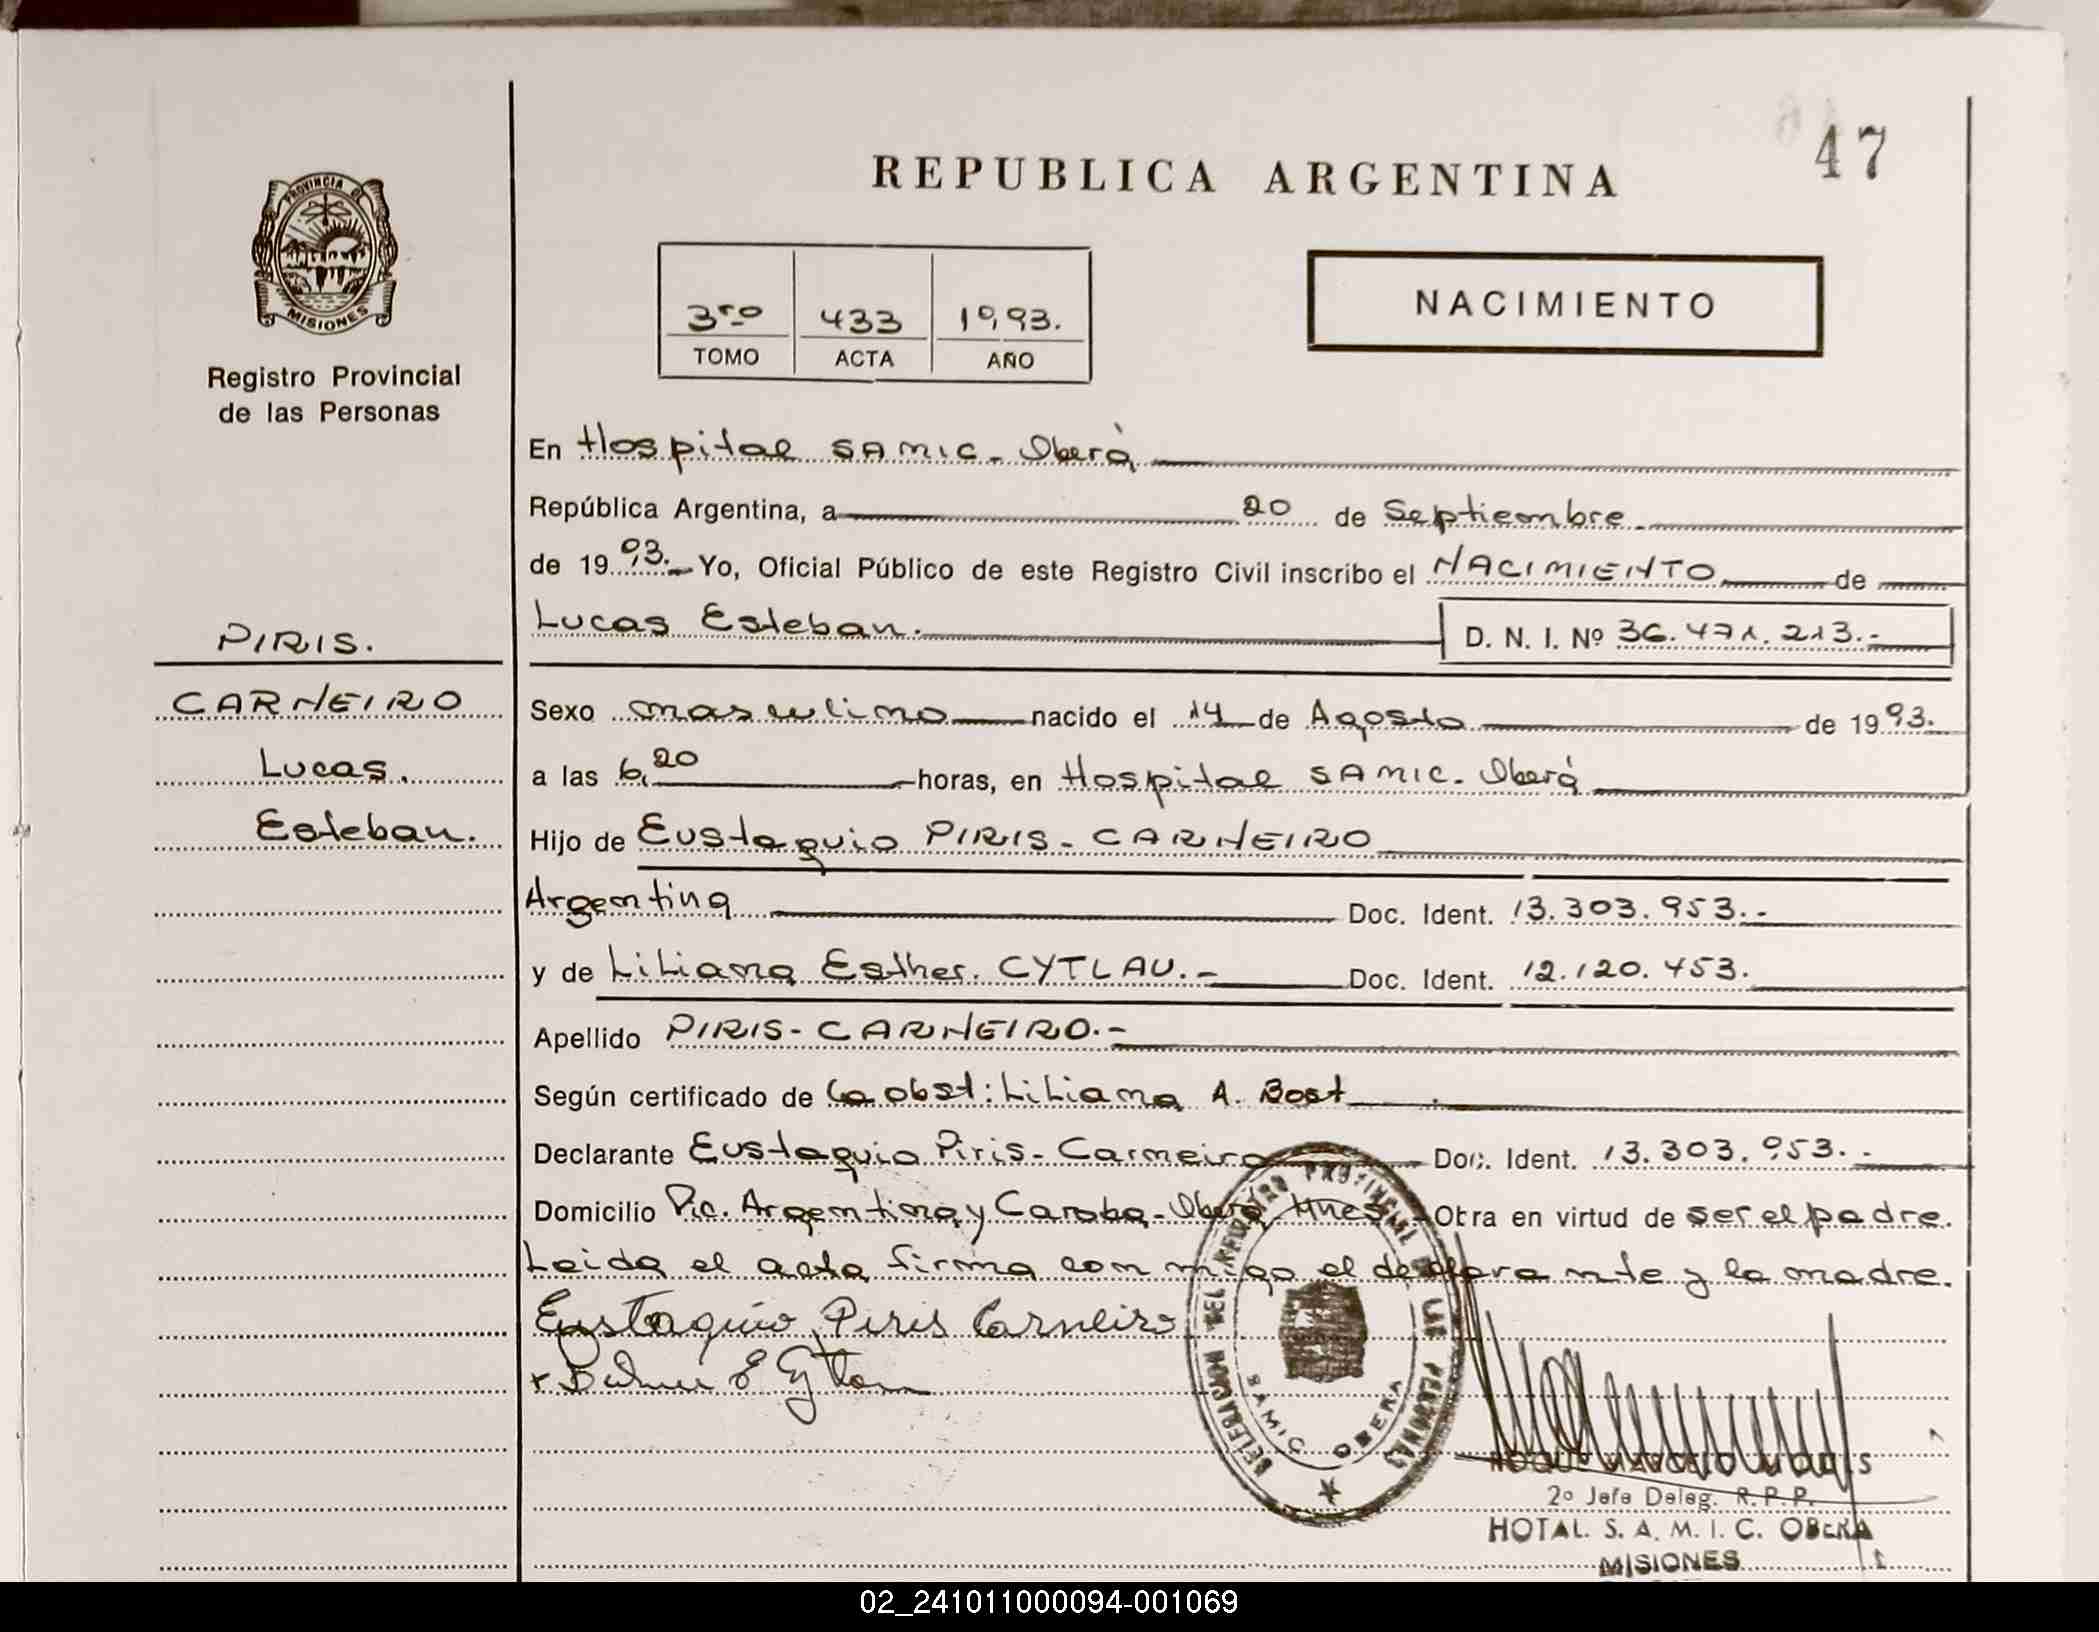 47
REPUBLICA ARGENTINA
PROVINCIA DE
MISIONES
Registro Provincial
de las Personas
3ro 433 1993.
TOMO ACTA AÑO
NACIMIENTO
En Hospital SAMIC - Oberá
República Argentina, a 20 de Septiembre
de 1993. Yo, Oficial Público de este Registro Civil inscribo el NACIMIENTO de
Lucas Esteban. D. N. I. Nº 36.471.213.-
PIRIS.
CARNEIRO
Lucas.
Esteban.
Sexo masculino nacido el 14 de Agosto de 1993.
a las 6,20 horas, en Hospital SAMIC - Oberá
Hijo de Eustaquio PIRIS - CARNEIRO
Argentina Doc. Ident. 13.303.953.-
y de Liliana Esther. CYTLAU.- Doc. Ident. 12.120.453.
Apellido PIRIS - CARNEIRO.-
Según certificado de la obst: Liliana A. Bost
Declarante Eustaquio Piris - Carneiro Doc. Ident. 13.303.953.-
Domicilio Pic. Argentina y Caraba - Oberá Mnes Obra en virtud de ser el padre.
Leida el acta firma con migo el declarante y la madre.
Eustaquio Piris Carneiro
DELEGACION DEL REGISTRO PROVINCIAL DE LAS PERSONAS
SAMIC OBERA
2º Jefe Deleg. R.P.P.
HOTAL. S. A. M. I. C. OBERA
MISIONES
02_241011000094-001069